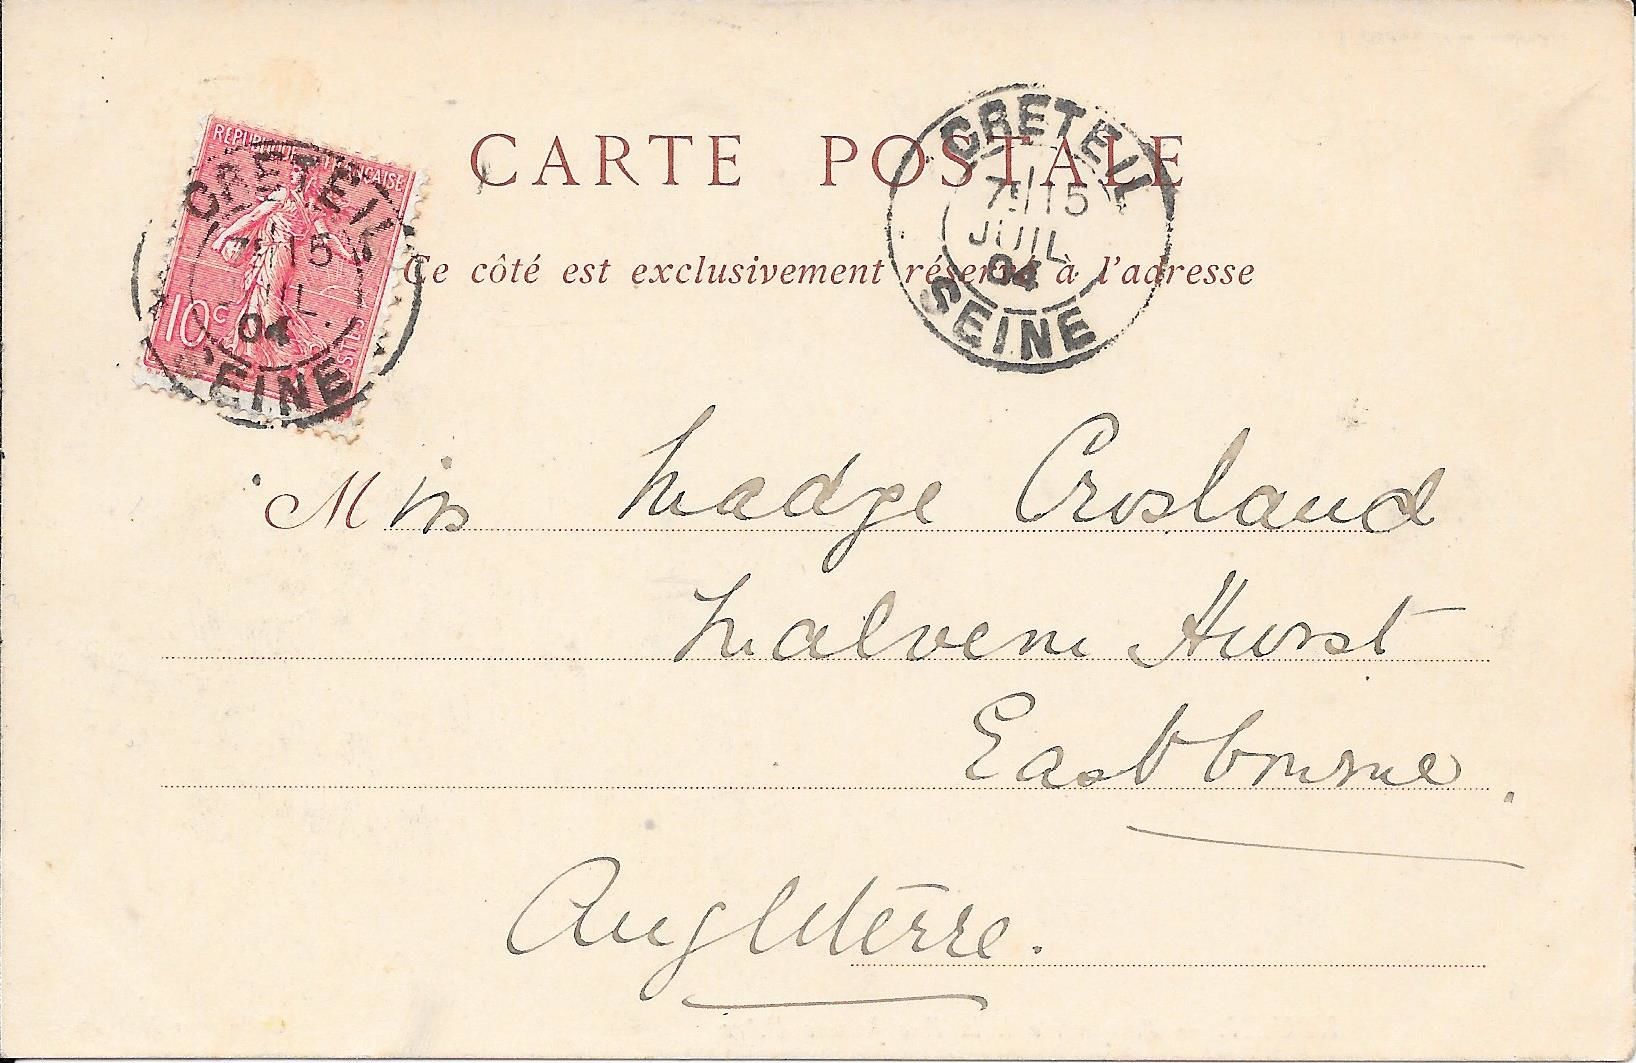 CARTE POSTALE
Ce côté est exclusivement réservé à l'adresse
REPUBLIQUE FRANÇAISE
10c
POSTES
CRETEIL
15
JUIL.
04
SEINE
CRETEIL
7 15
JUIL
04
SEINE
Miss Madge Crosland
Malvern Hurst
Eastbourne.
Angleterre.